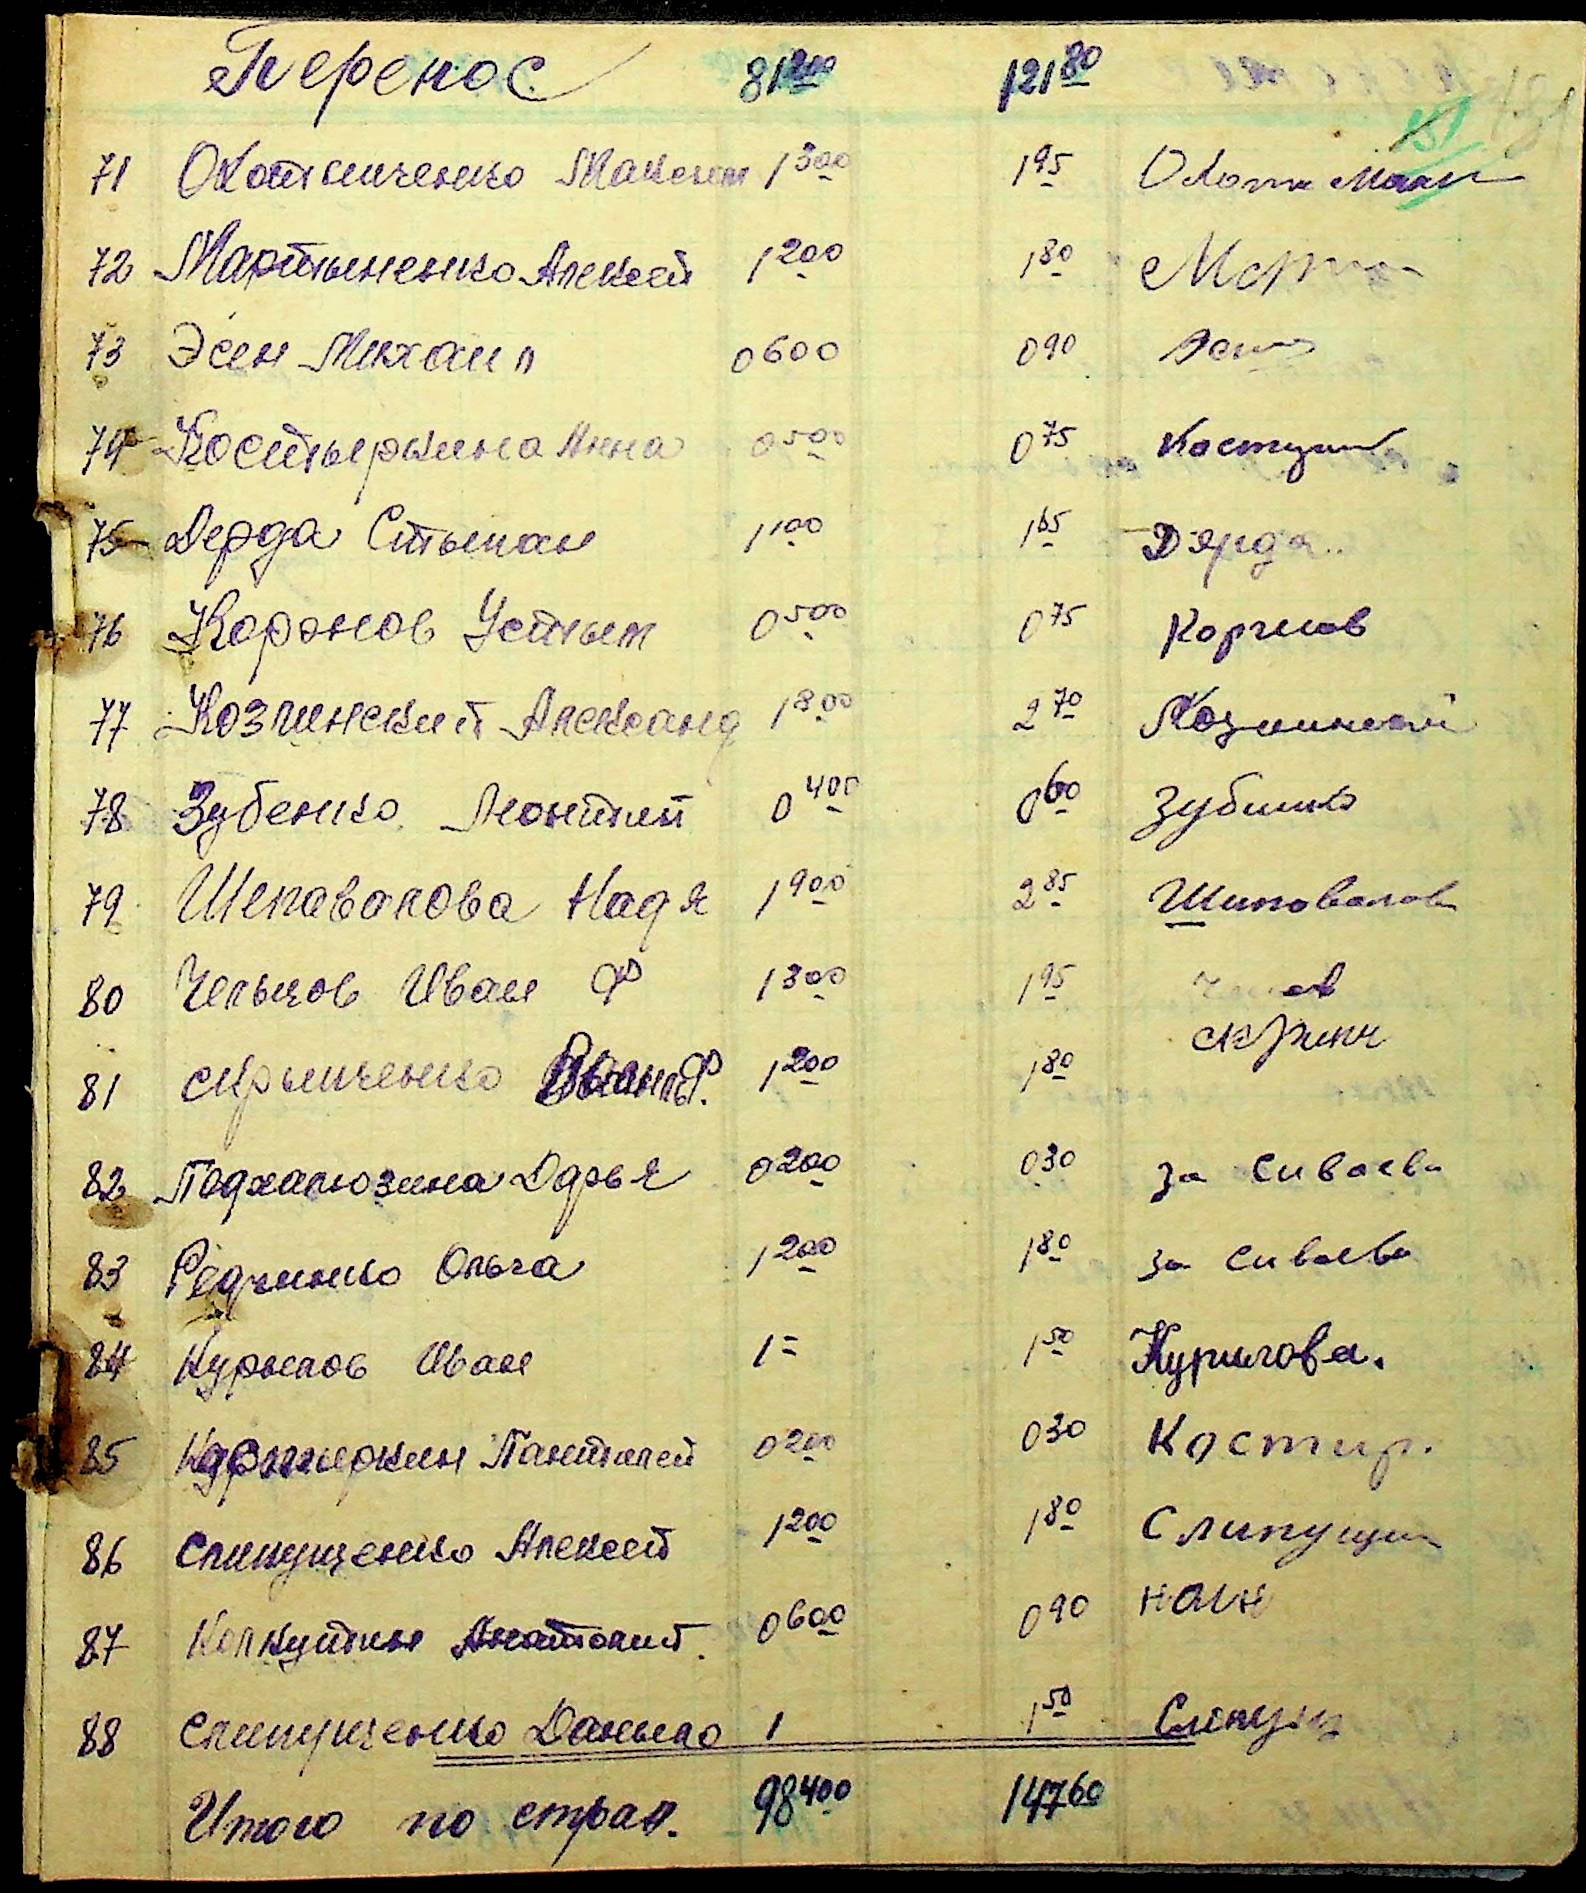 Перенос 81 200 121 80
151
71 Охотниченко Максим 1 300 1 95
72 Мартыненко Алексей 1 200 1 80
73 Эсен Михаил 0 600 0 90
74 Костыркина Анна 0 500 0 75
75 Дерда Стыпан 1 100 1 65 Дярда
76 Коронов Устым 0 500 0 75
77 Козлинский Александ 1 800 2 70 Козлинский
78 Зубенко Леонтий 0 400 0 60
79 Шеповалова Надя 1 900 2 85 Шиповалов
80 Чельцов Иван Ф 1 300 1 95
81 Скрыпченко Ф. 1 200 1 80 Скрипч
82 Подхалюзина Дарья 0 200 0 30 за Сиваева
83 Редченко Ольга 1 200 1 80 за Сиваева
84 Курилов Иван 1 = 1 50 Курилова.
85 Пантилей 0 200 0 30 Костир.
86 Слипущенко Алексей 1 200 1 80 Слипущен
87 Колкутин Анатолий. 0 600 0 90
88 Слипущенко Даныло 1 1 50 Слепущ
Итого по стран. 98 400 147 60